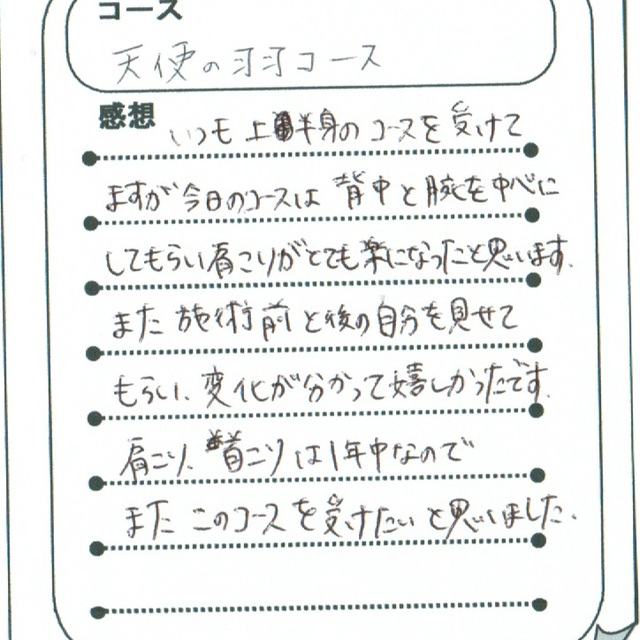 コース
天使の羽コース
感想
いつも上半身のコースを受けて
ますが今日のコースは背中と腕を中心に
してもらい肩こりがとても楽になったと思います。
また施術前と後の自分を見せて
もらい、変化が分かって嬉しかったです。
肩こり、首こりは1年中なので
またこのコースを受けたいと思いました。